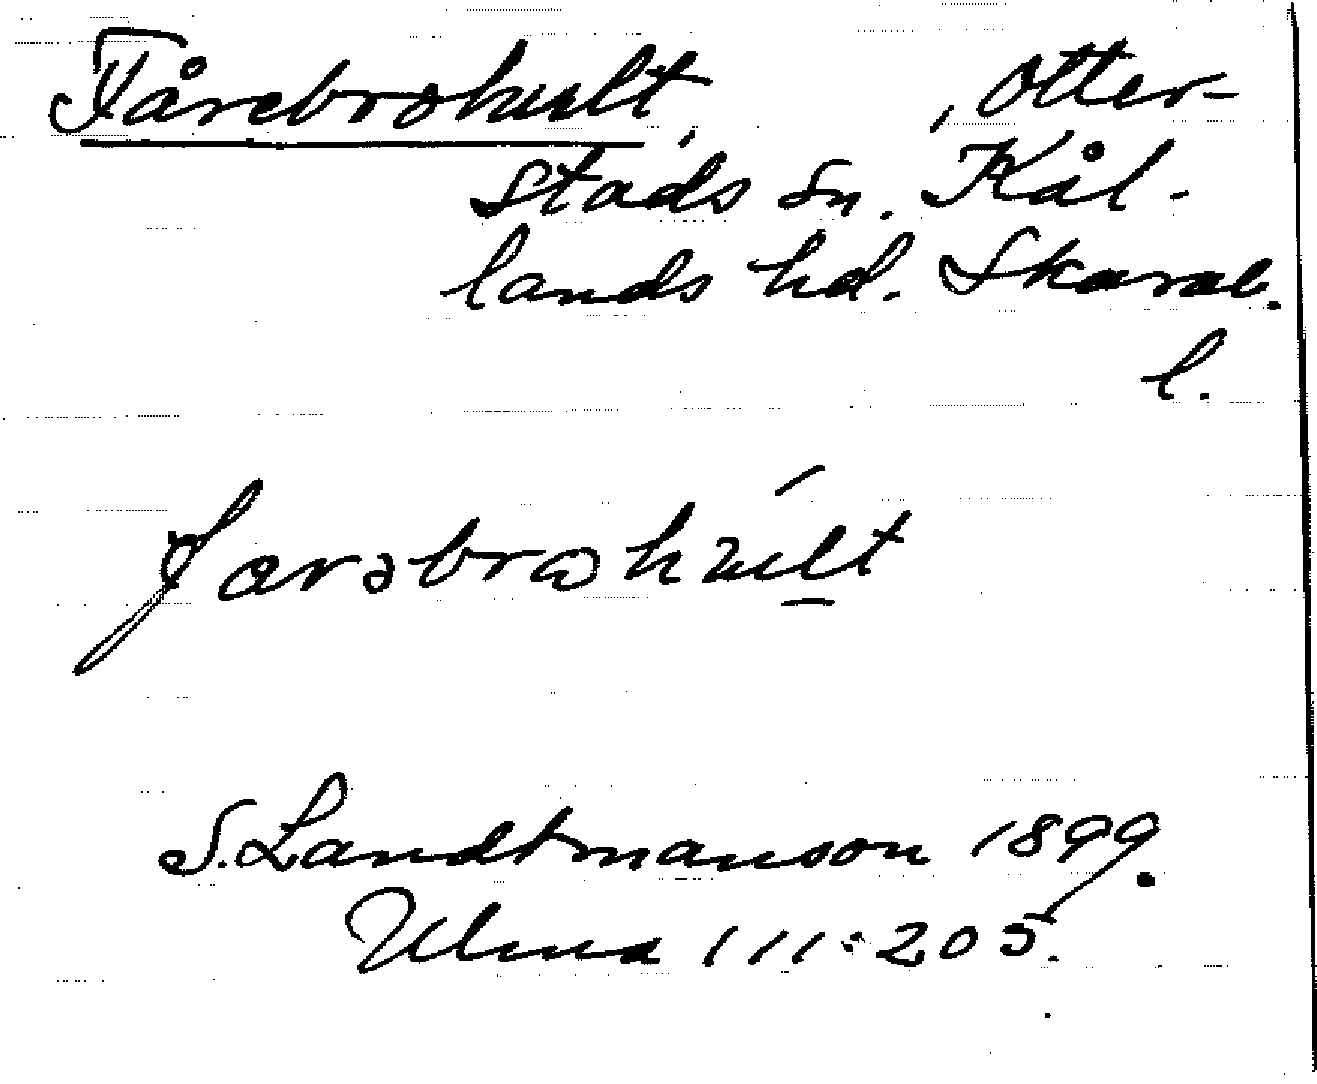 Fårebrohult, , Otter-
stads sn. Kål-
lands hd. Skarab.
l.
S. Landtmanson 1899.
Ulma 111:205.